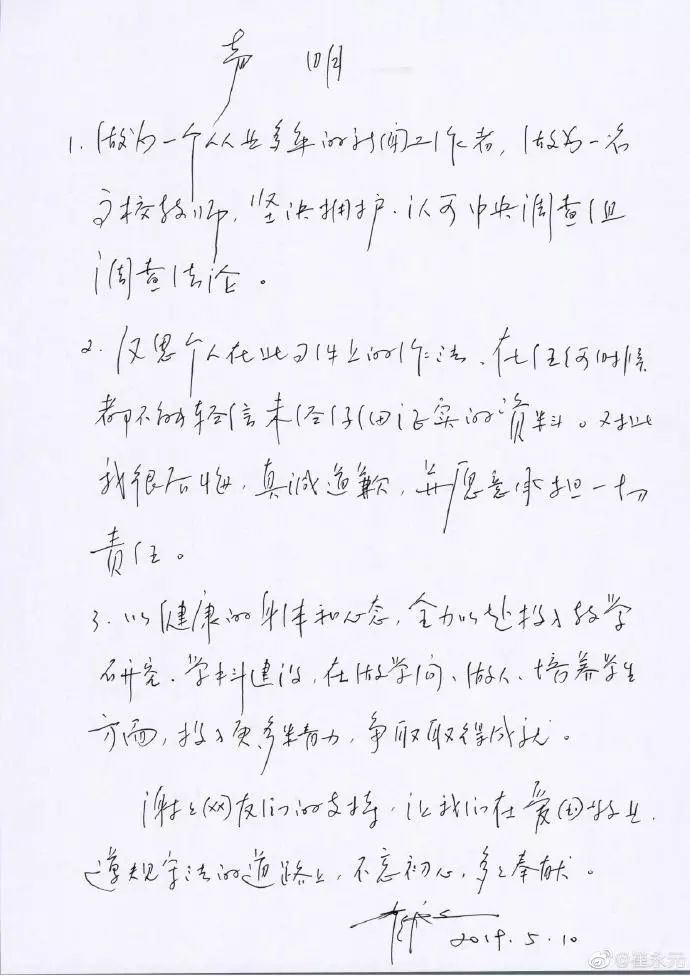 声 明
1. 做为一个从业多年的新闻工作者，做为一名
高校教师，坚决拥护、认可中央调查组
调查结论。
2. 反思个人在此事件上的作法、在任何时候
都不能轻信未经仔细证实的资料。对此
我很后悔，真诚道歉，并愿意承担一切
责任。
3. 以健康的身体和心态，全力以赴投入教学
研究、学科建设，在做学问、做人、培养学生
方面，投入更多精力，争取取得成就。
谢谢网友们的支持，让我们在爱国敬业、
遵规守法的道路上，不忘初心，多多奉献。
崔永元
2019.5.10
@崔永元